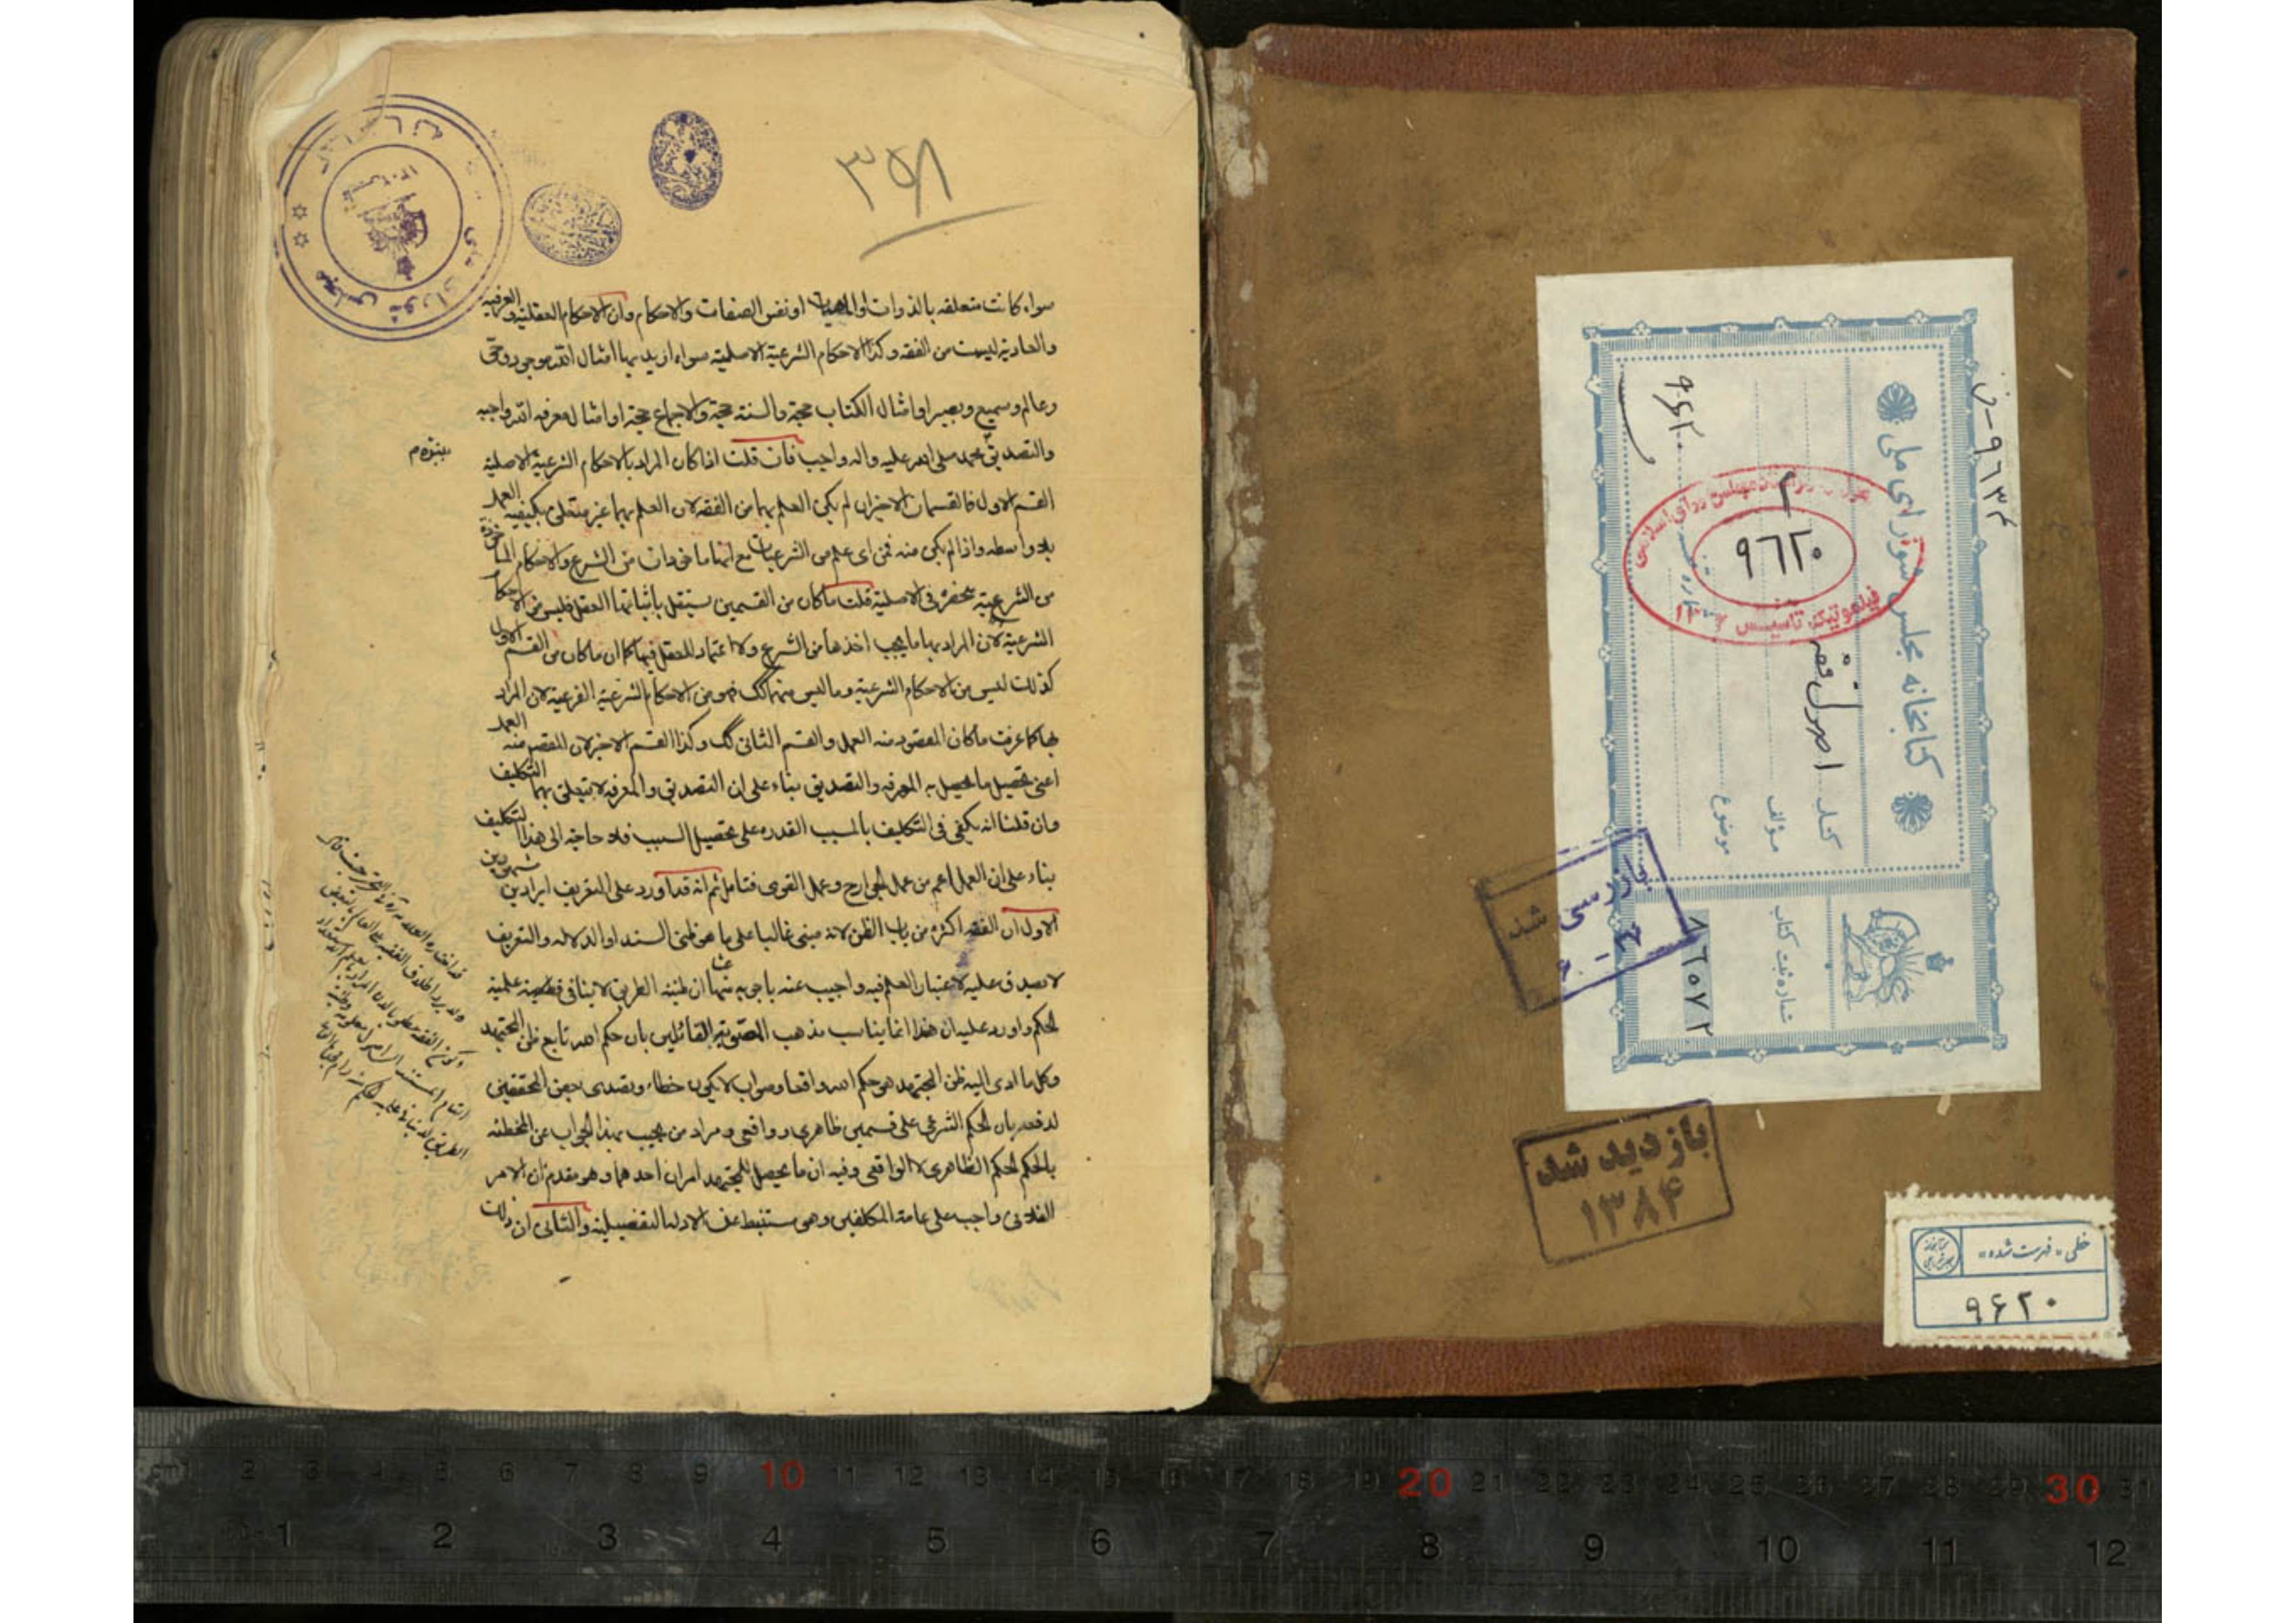 ۳۵۸
سواء كانت متعلقه بالذوات او الماهيات او نفس الصفات والاحكام وان الاحكام العقلية والعرفيه
والعاديه ليست من الفقه وكذا الاحكام الشرعية الاصلية سواء اريد بها امثال الله موجود وحى
وعالم وسميع وبصير او امثال الكتاب حجة والسنة حجة والاجماع حجة او امثال معرفه الله واجبه
والتصديق بمحمد صلى الله عليه واله واجب فان قلت اذا كان المراد بالاحكام الشرعية الاصلية
بنبوه م
القسم الاول فالقسمان الاخيران لم يكن العلم بهما من الفقه لان العلم بهما غير متعلق بكيفيه العمل
بلا واسطه واذا لم يكن منه فمن اى علم من الشرعيات مع انهما ماخوذان من الشرع والاحكام الماخوذة
من الشرع منحصره فى الاصلية قلت ما كان من القسمين يستقل باثباتها العقل فليس من الاحكام
الشرعية لان المراد بها ما يجب اخذها من الشرع ولا اعتماد للعقل فيها كما ان ما كان من القسم الاول
كذلك ليس من الاحكام الشرعية وما ليس منهما كك فهو من الاحكام الشرعية الفرعية لان المراد
بها كما عرفت ما كان المقصود منه العمل والقسم الثانى كك وكذا القسم الاخير لان المقصود منه العمل
اعنى تحصيل ما يحصل به المعرفه والتصديق بناء على ان التصديق والمعرفه لا يتعلق بهما التكليف
وان قلنا انه يكفى فى التكليف بالمسبب القدره على تحصيل السبب فلا حاجة الى هذا التكليف
بناء على ان العمل اعم من عمل الجوارح وعمل القوى فتامل ثم انه قد اورد على التعريف ايرادين مشهورين
الاول ان الفقه اكثره من باب الظن لانه مبنى غالبا على ما هو ظنى السند او الدلاله والتعريف
لا يصدق عليه لاعتبار العلم فيه واجيب عنه باجوبه منها ان ظنية الطريق لا ينافى قطعية علمية
الحكم واورد عليه ان هذا انما يناسب مذهب المصوبة القائلين بان حكم الله تابع ظن المجتهد
وكل ما ادى اليه ظن المجتهد هو حكم الله واقعا وصواب لا يكون خطاء وتصدى بعض المحققين
لدفعه بان الحكم الشرعى على قسمين ظاهرى وواقعى ومراد من يجيب بهذا الجواب عن المخطئه
بالحكم الحكم الظاهرى لا الواقعى وفيه ان ما يحصل للمجتهد امران احدهما وهو مقدم ان الامر
الفلانى واجب على عامة المكلفين وهى مستنبط عن الادلة التفصيلية والثانى ان ذلك
کتابخانه مجلس شورای ملی
کتاب اصول فقه
مؤلف
موضوع
شماره ثبت کتاب
۸۶۵۷۲
۹۶۲۰
۹۶۲۰
۹۶۳۴
فیلموتیک تاسیس
بازرسی شد
بازدید شد
۱۳۸۴
خطی «فهرست شده»
۹۶۲۰
cm 1 2 3 4 5 6 7 8 9 10 11 12 13 14 15 16 17 18 19 20 21 22 23 24 25 26 27 28 29 30 31
1 2 3 4 5 6 7 8 9 10 11 12